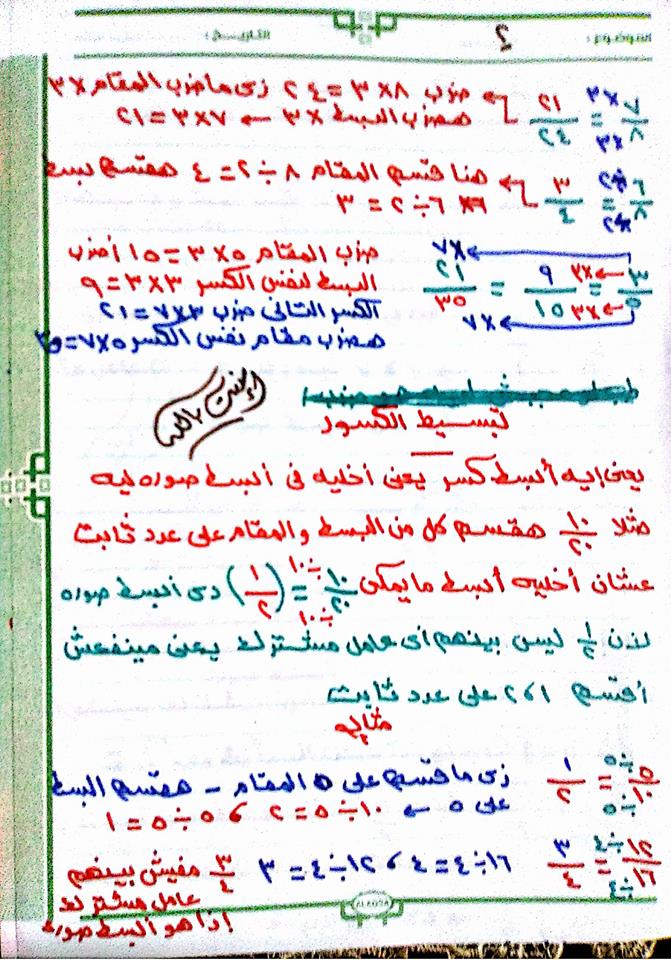 الموضوع: ٤ التاريخ:
٧/٨ ×٣ ×٣ = ٢١/٢٤ ضرب ٨×٣ = ٢٤ زى ماضرب المقام ×٣
هضرب البسط ×٣ ← ٧×٣ = ٢١
٦/٨ ÷٢ ÷٢ = ٣/٤ هنا قسم المقام ٨÷٢ = ٤ هقسم بسط
٦÷٢ = ٣
٣/٥ ×٣ ×٣ = ٩/١٥ = ٢١/٣٥ ×٧ ×٧
ضرب المقام ٥×٣ = ١٥ أضرب
البسط لنفس الكسر ٣×٣ = ٩
الكسر التانى ضرب ٣×٧ = ٢١
هضرب مقام نفس الكسر ٥×٧ = ٣٥
تبسيط الكسور
يعنى إيه أبسط كسر يعنى أخليه فى أبسط صوره ليه
مثلا ١٠/٢٠ هقسم كل من البسط والمقام على عدد ثابت
عشان أخليه أبسط ما يمكن ١٠/٢٠ ÷١٠ ÷١٠ = (١/٢) دى أبسط صوره
لإن ١/٢ ليس بينهم أى عامل مشترك يعنى مينفعش
أقسم ١،٢ على عدد ثابت
مثال
٥/١٠ ÷٥ ÷٥ = ١/٢ زى ما قسم على ٥ المقام - هقسم البسط
على ٥ ← ١٠÷٥ = ٢ ، ٥÷٥ = ١
١٢/١٦ ÷٤ ÷٤ = ٣/٤ ١٦÷٤ = ٤ ، ١٢÷٤ = ٣ ٣/٤ مفيش بينهم
عامل مشترك
إذا هو أبسط صوره